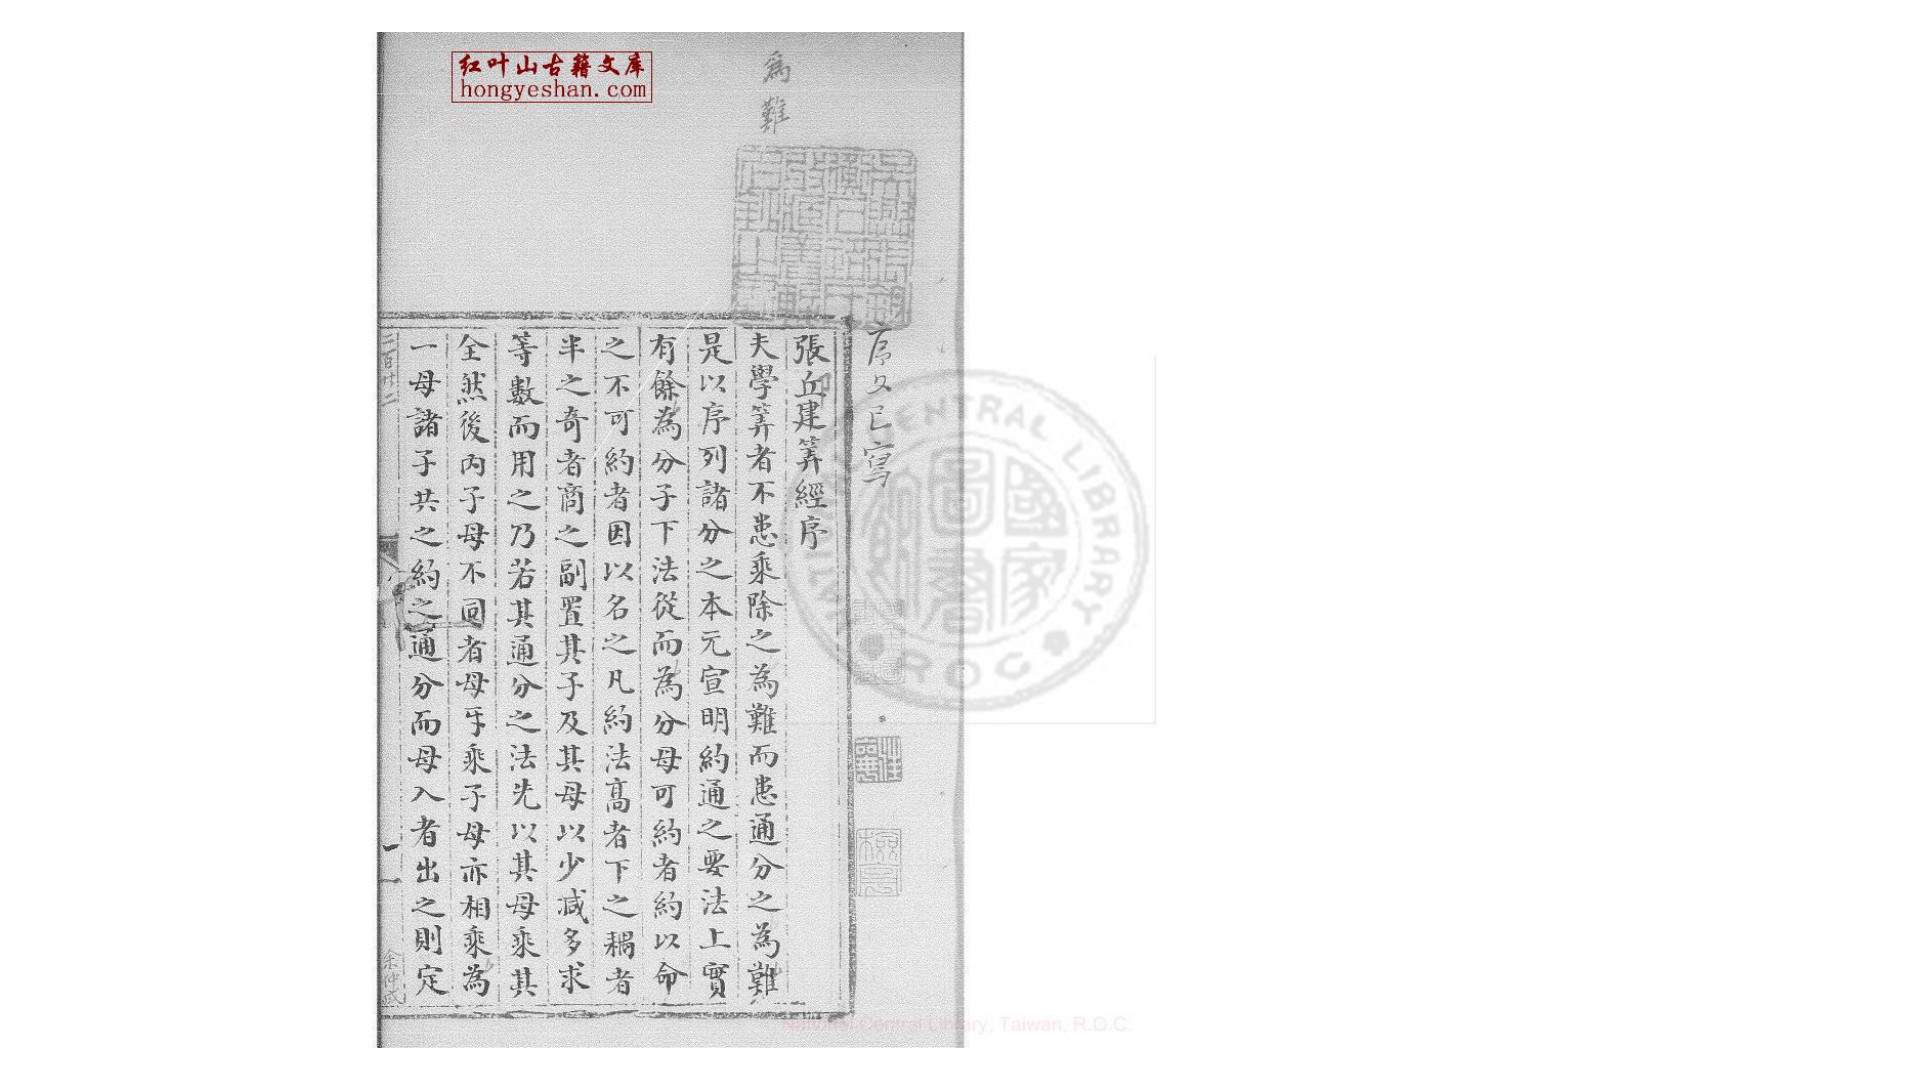 红叶山古籍文库
hongyeshan.com
爲難
序文已寫
張丘建筭經序
夫學筭者不患乘除之為難而患通分之為難
是以序列諸分之本元宣明約通之要法上實
有餘為分子下法從而為分母可約者約以命
之不可約者因以名之凡約法高者下之耦者
半之奇者商之副置其子及其母以少减多求
等數而用之乃若其通分之法先以其母乘其
全然後内子母不同者母乎乘子母亦相乘為
一母諸子共之約之通分而母入者出之則定
三百廿二
余仲成
國家圖書館
NATIONAL CENTRAL LIBRARY
R.O.C
National Central Library, Taiwan, R.O.C.